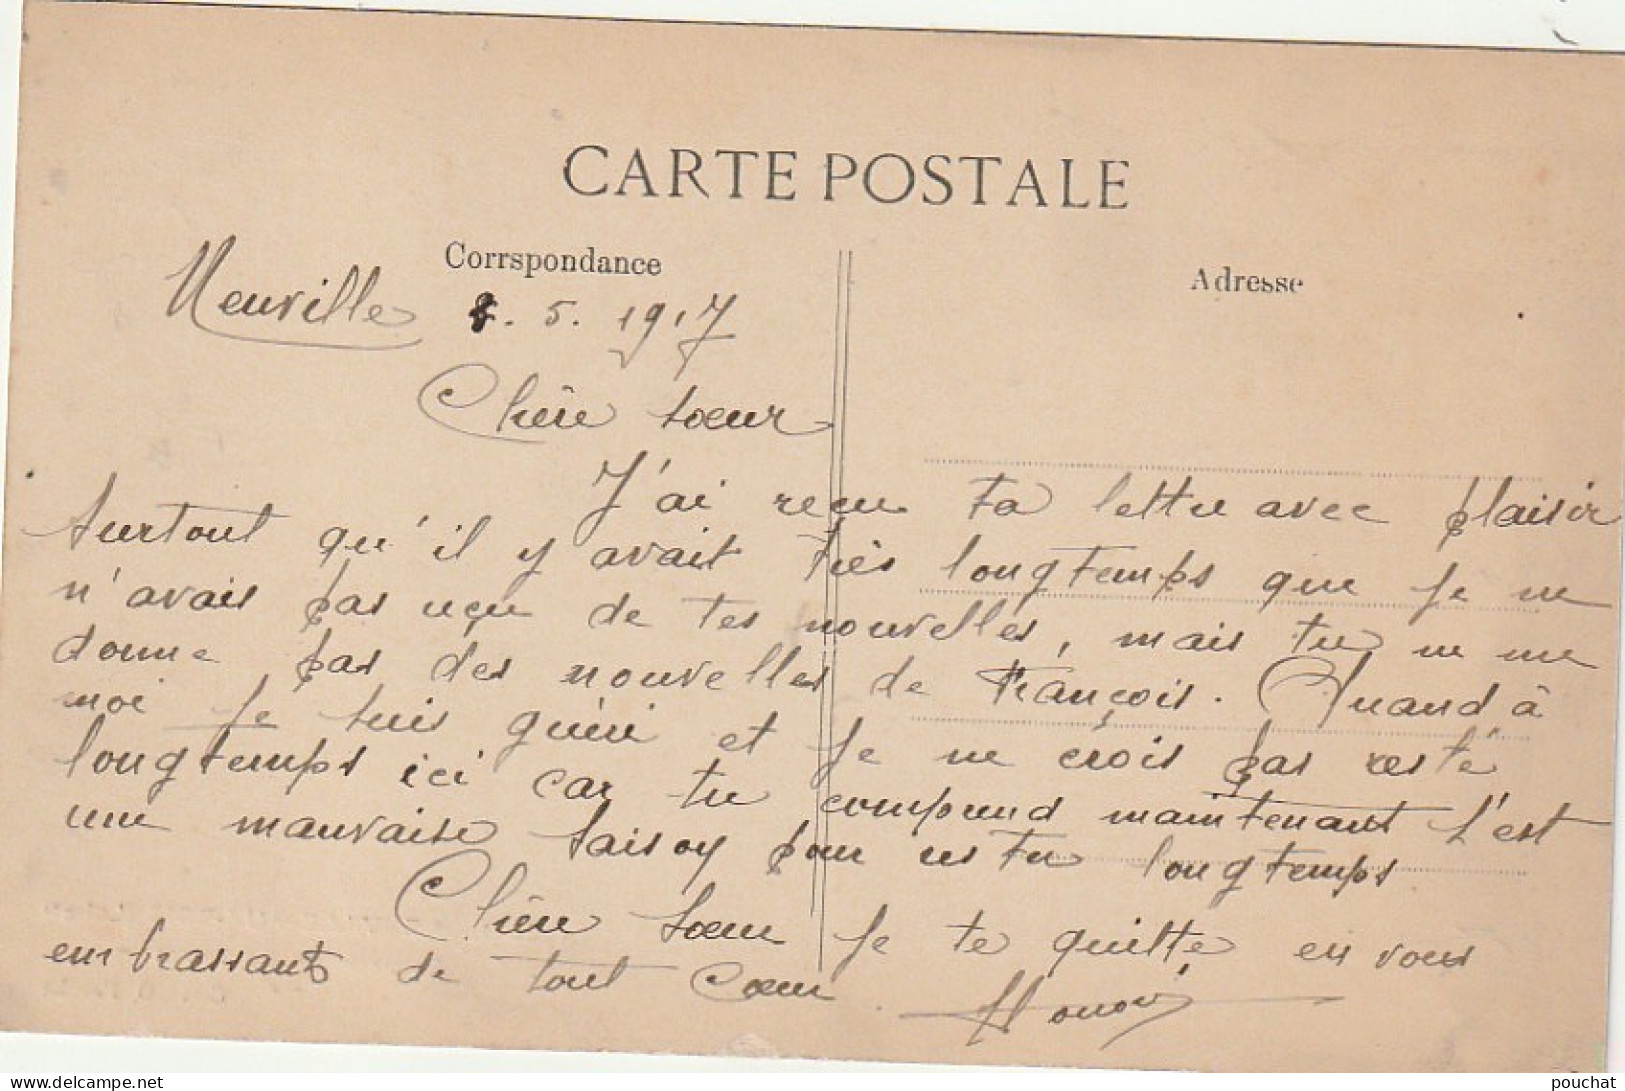 CARTE POSTALE
Corrspondance
Adresse
Neuville 8. 5. 1917
Chère sœur
J'ai reçu ta lettre avec plaisir
surtout qu'il y avait très longtemps que je ne
n'avais pas reçu de tes nouvelles, mais tu ne me
donne pas des nouvelles de François. Quand à
moi je suis guéri et je ne crois pas resté
longtemps ici car tu comprend maintenant s'est
une mauvaise saison pour restu longtemps
Chère sœur je te quitte en vous
embrassants de tout cœur. Honoré
pouchat